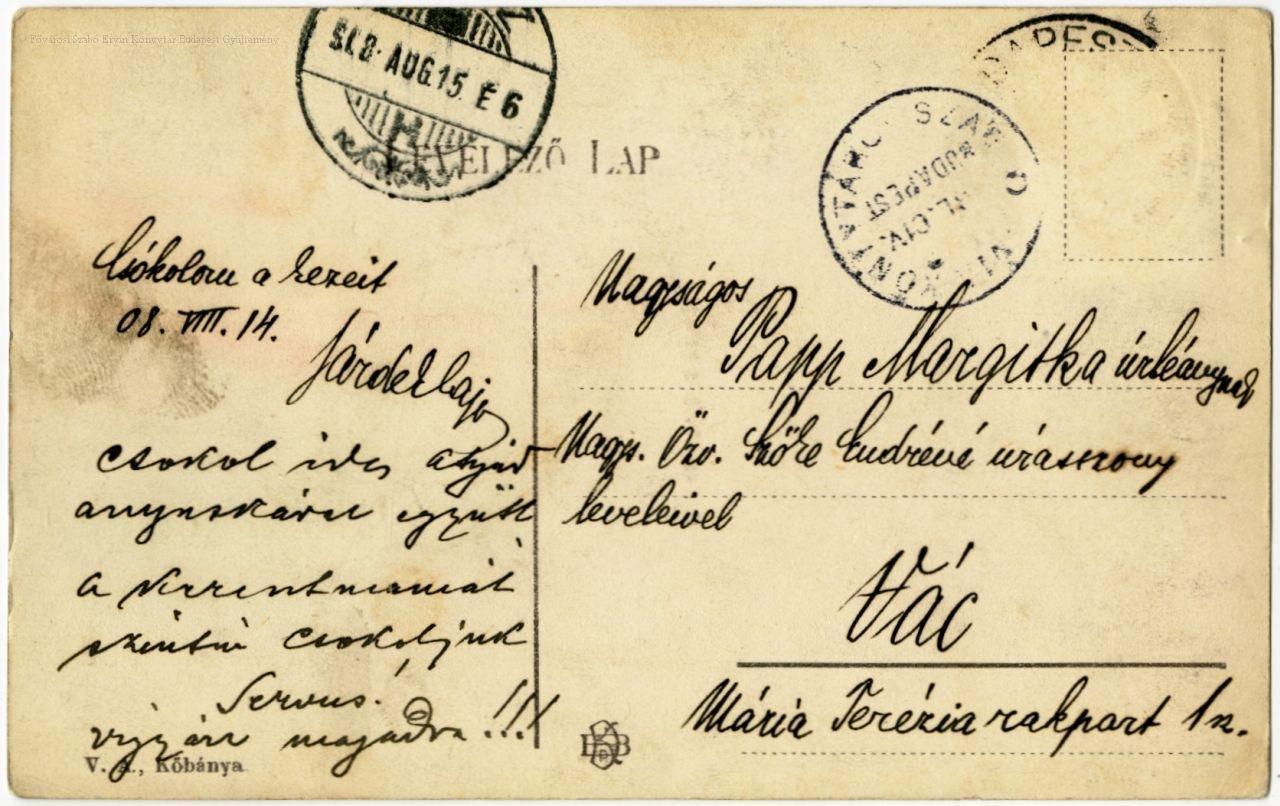 Fővárosi Szabó Ervin Könyvtár Budapest Gyűjtemény
908 AUG.15 E 6
BUDAPEST
LEVELEZŐ LAP
SZAB
BUDAPEST
KÖNYVTÁR
Csókolom a kezeit
08. VIII. 14.
csokol ides apjád
anyuskával együtt
a
szintén csokoljuk
Servus!
vigyázz magadra!!!
Nagyságos
Papp Margitka úrleánynak
Nagys. Özv. Szőke Endréné úrasszony
leveleivel
Vác
Mária Terézia rakpart 1 sz.
V. A., Kőbánya